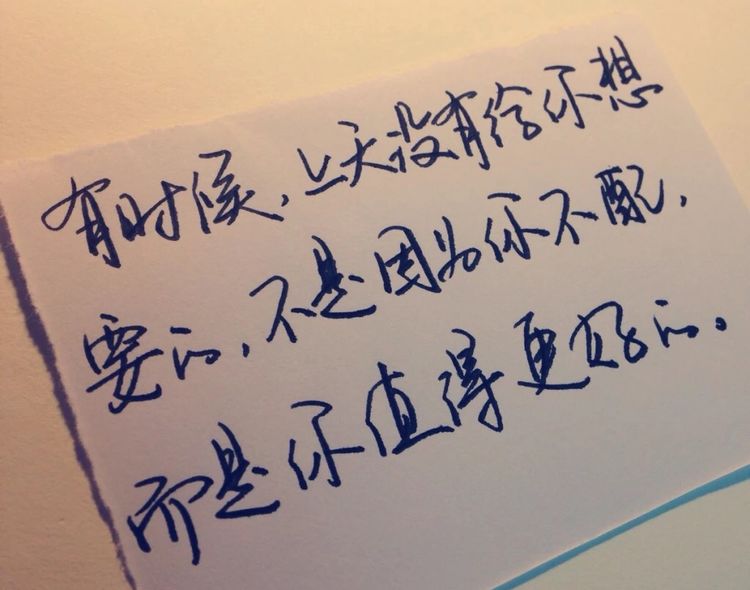 有时候，上天没有给你想
要的，不是因为你不配，
而是你值得更好的。